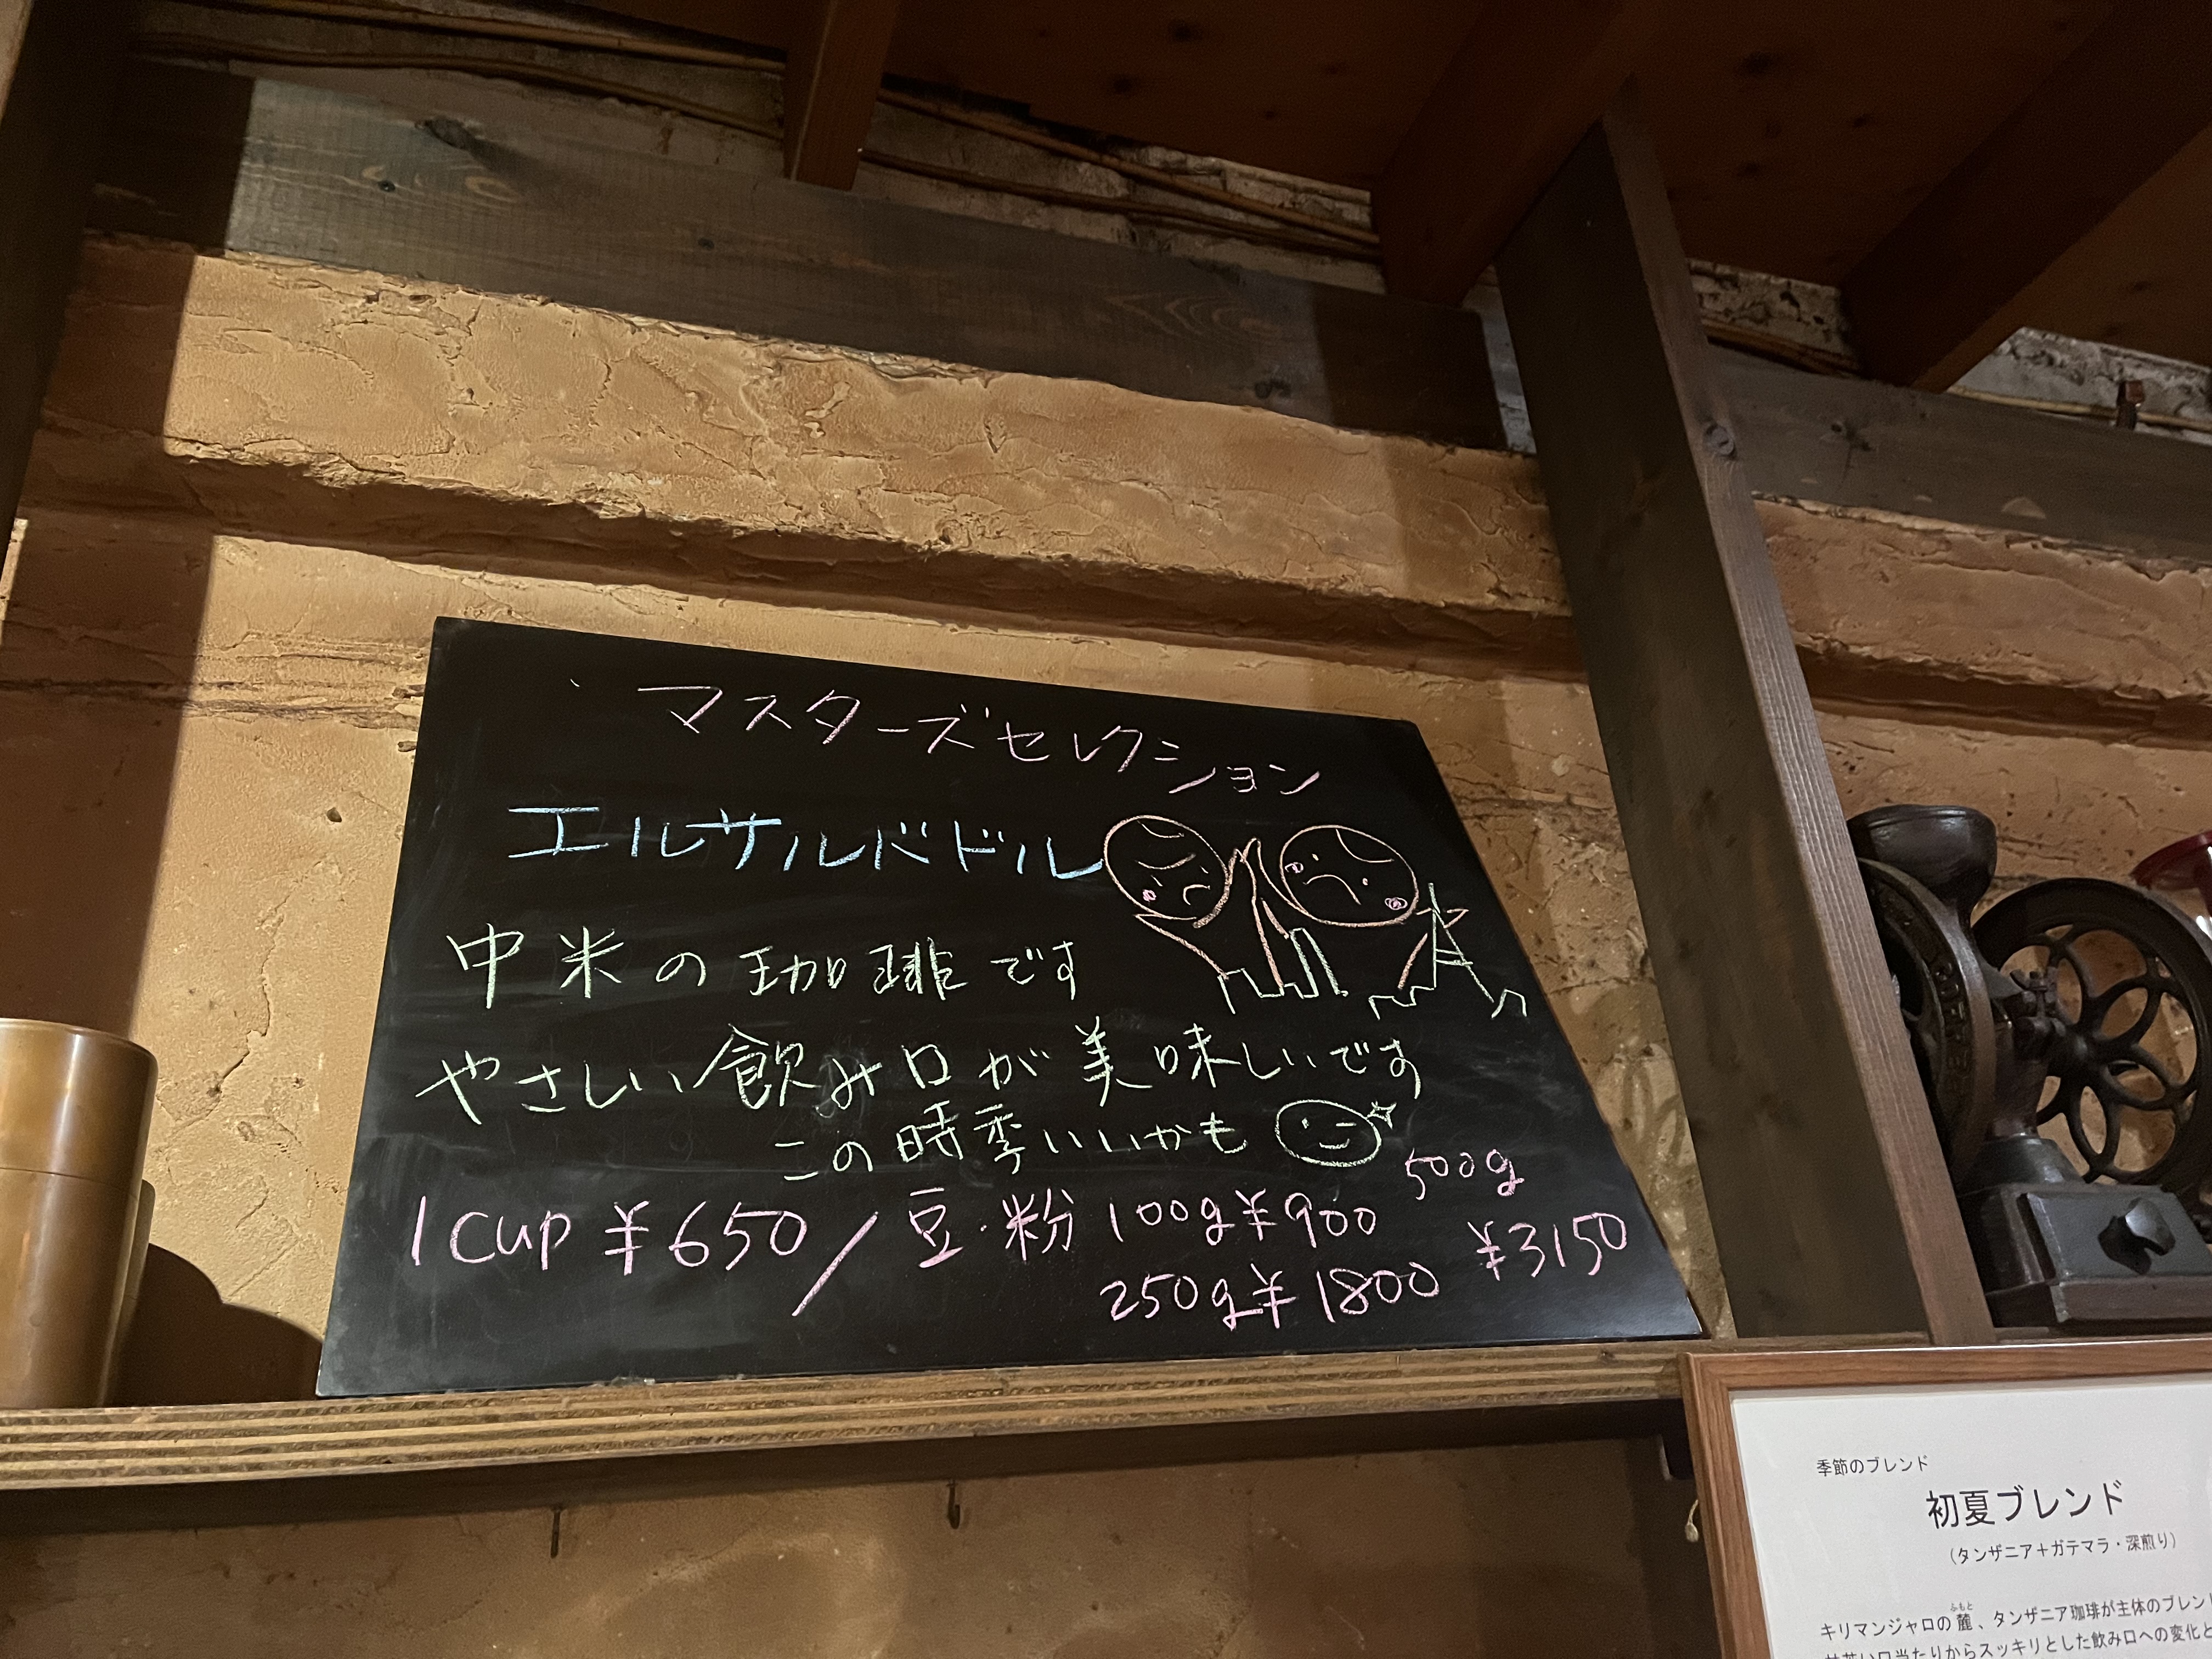 マスターズセレクション
エルサルバドル
中米の珈琲です
やさしい飲み口が美味しいです
この時季いいかも
1cup ¥650/豆・粉 100g¥900
250g¥1800
500g
¥3150
季節のブレンド
初夏ブレンド
(タンザニア+ガテマラ・深煎り)
ふもと
キリマンジャロの麓、タンザニア珈琲が主体のブレン
口当たりからスッキリとした飲み口への変化と